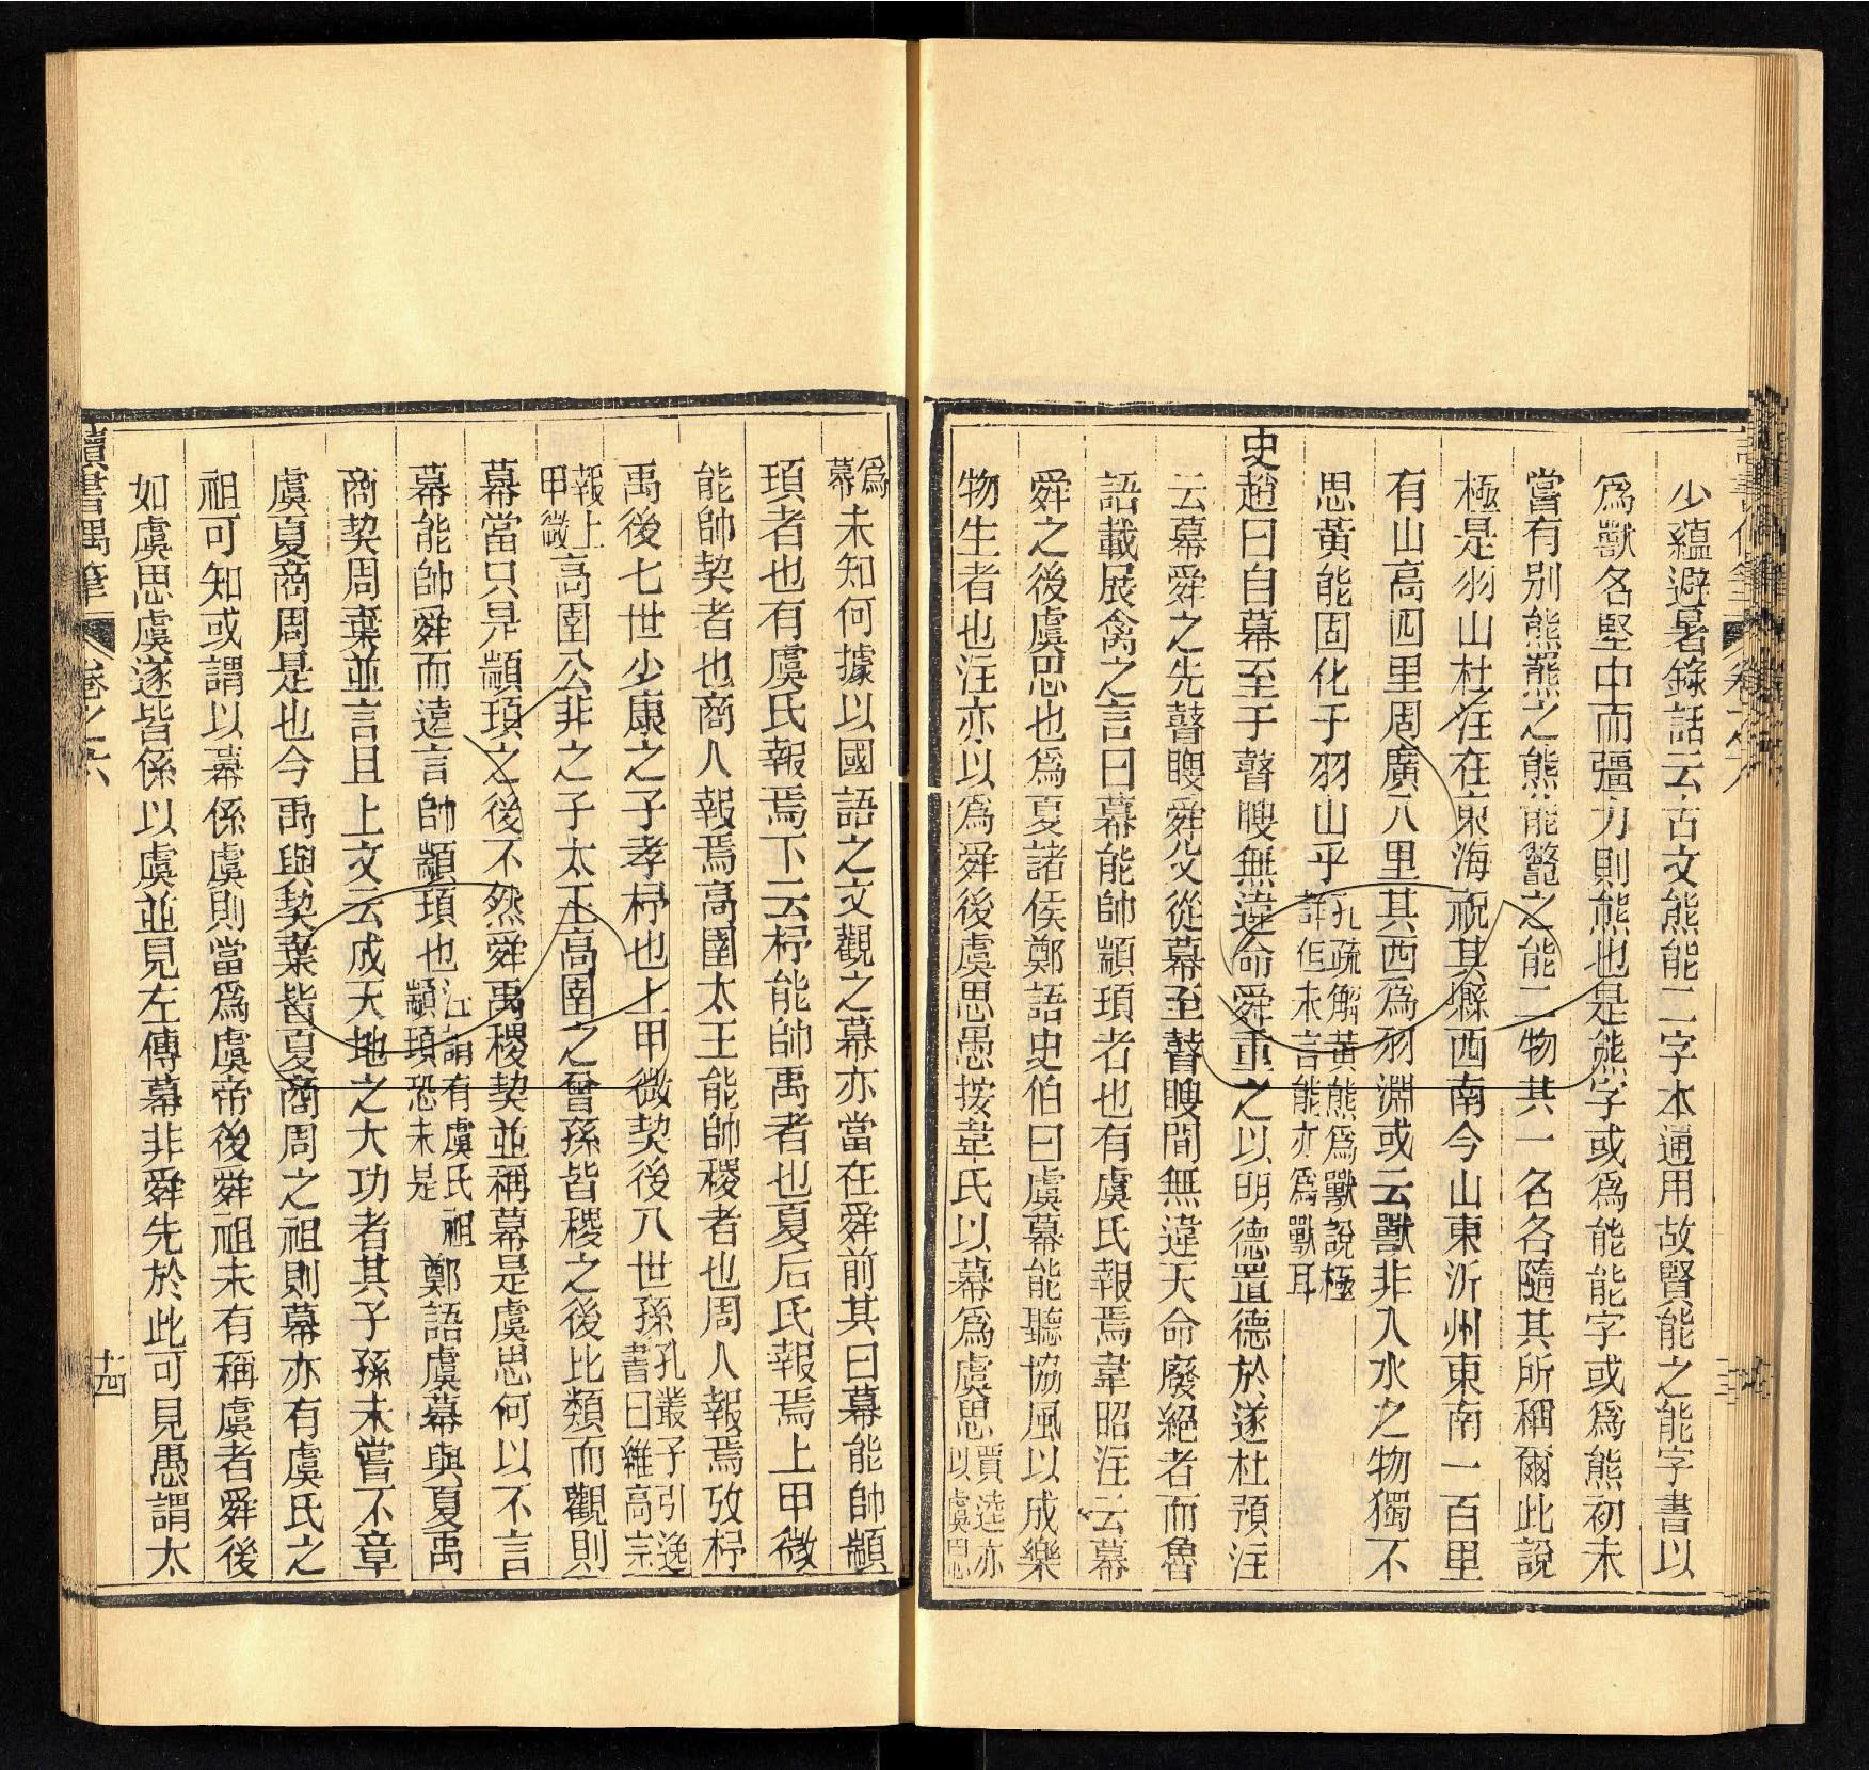 少蘊避暑錄話云古文熊能二字本通用故賢能之能字書以
爲獸名堅中而彊力則熊也是熊字或爲能能字或爲熊初未
嘗有别熊羆之熊熊能鼈之能二物其一名名隨其所稱爾此説
極是羽山杜注在東海祝其縣西南今山東沂州東南一百里
有山高四里周廣八里其西爲羽淵或云獸非入水之物獨不
思黃能固化于羽山乎孔疏解黃熊爲獸説極
詳但未言能亦爲獸耳
史趙曰自幕至于瞽瞍無違命舜重之以明德寘德於遂杜預注
云幕舜之先瞽瞍舜父從幕至瞽瞍間無違天命廢絕者而魯
語載展禽之言曰幕能帥顓頊者也有虞氏報焉韋昭注云幕
舜之後虞思也爲夏諸侯鄭語史伯曰虞幕能聽協風以成樂
物生者也注亦以爲舜後虞思愚按韋氏以幕爲虞思賈逵亦
以虞思
爲
幕未知何據以國語之文觀之幕亦當在舜前其曰幕能帥顓
頊者也有虞氏報焉下云杼能帥禹者也夏后氏報焉上甲微
能帥契者也商人報焉高圉太王能帥稷者也周人報焉攷杼
禹後七世少康之子孝杼也上甲微契後八世孫孔叢子引逸
書曰維高宗
報上
甲微高圉公非之子太王高圉之曾孫皆稷之後比類而觀則
幕當只是顓頊之後不然舜禹稷契並稱幕是虞思何以不言
幕能帥舜而遠言帥顓頊也江謂有虞氏祖
顓頊恐未是鄭語虞幕與夏禹
商契周棄並言且上文云成天地之大功者其子孫未嘗不章
虞夏商周是也今禹與契棄皆夏商周之祖則幕亦有虞氏之
祖可知或謂以幕係虞則當爲虞帝後舜祖未有稱虞者舜後
如虞思虞遂皆係以虞並見左傳幕非舜先於此可見愚謂太
讀書偶筆
卷之六
十四